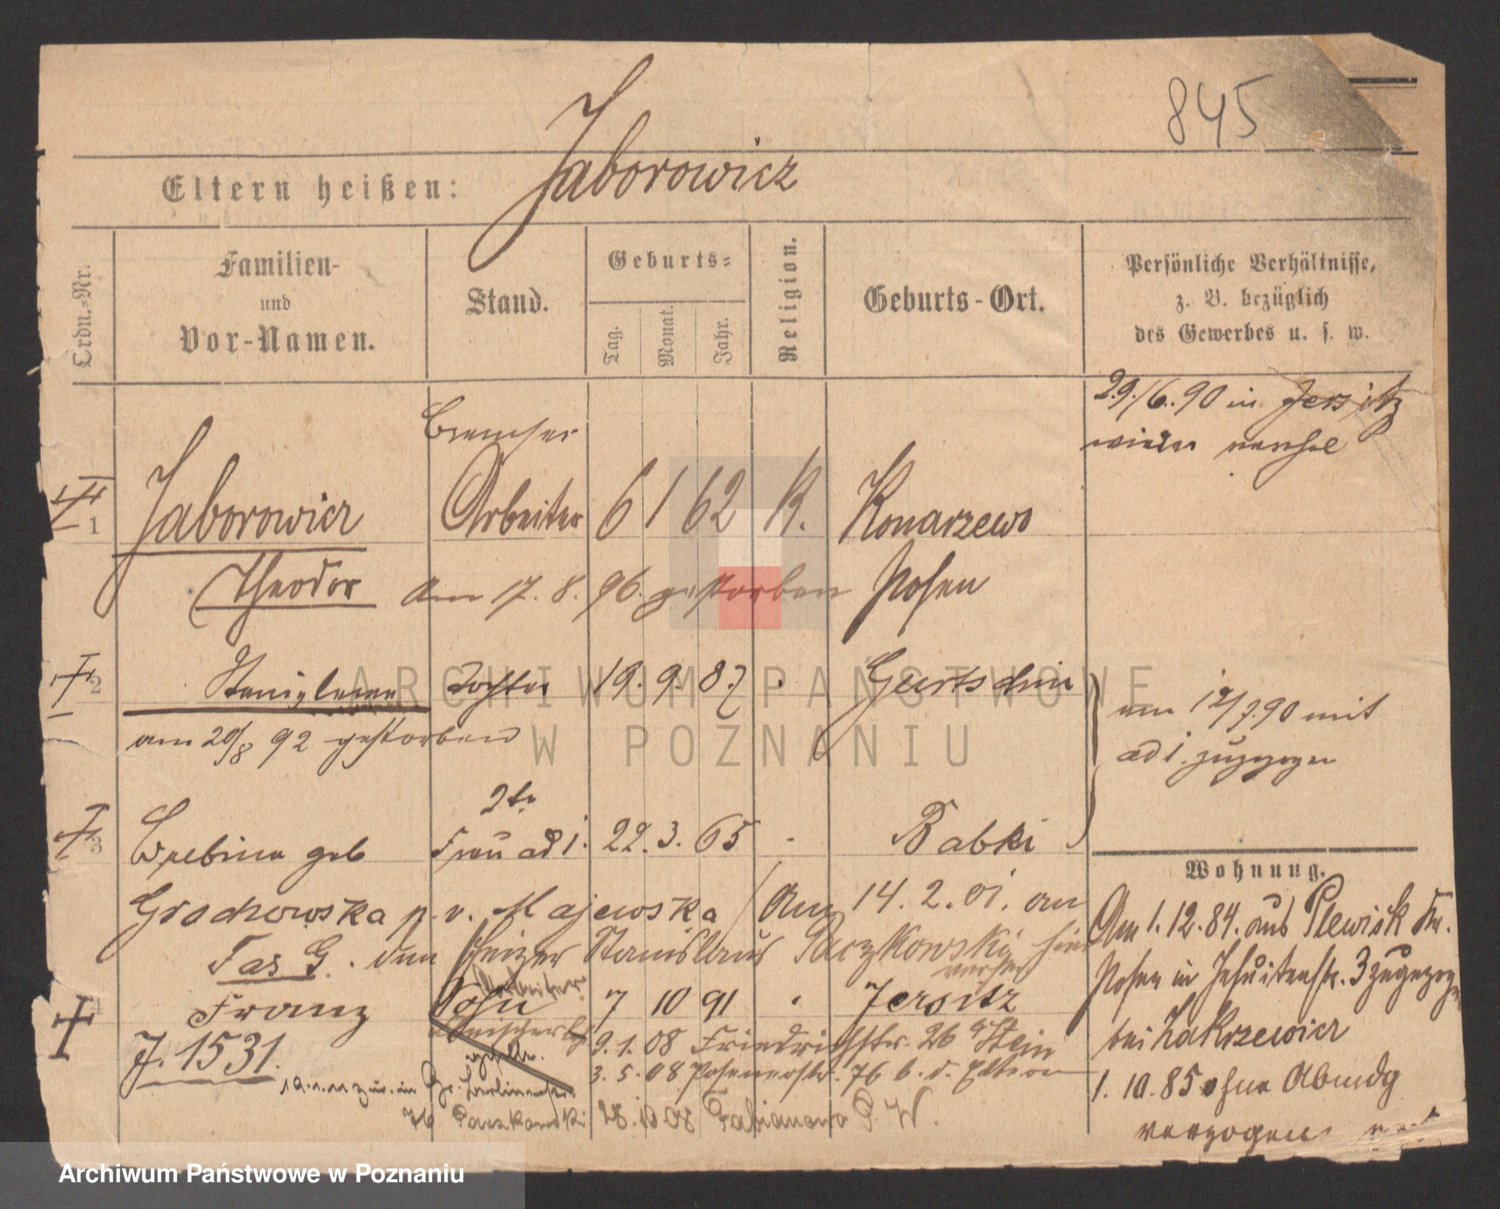 845
Eltern heißen: Jaborowicz
Ordn.-Nr.
Familien-
und
Vor-Namen.
Stand.
Geburts-
Tag.
Monat.
Jahr.
Religion.
Geburts-Ort.
Persönliche Verhältnisse,
z. B. bezüglich
des Gewerbes u. s. w.
29./6.90 in Jersitz
wieder
Bremser
1 Jaborowicz Arbeiter 6 1 62 K. Konarzewo
Theodor am 17. 8. 96. gestorben Posen
2 Stanislawa Tochter 19. 9. 87 Gurtschin
am 20/8 92 gestorben
am 12/7.90 mit
ad 1. zugezogen
2te
3 geb Frau ad 1. 22. 3. 65 Babki
Grochowska p. v. Majewska Am 14. 2. 01. an
den Heizer Stanislaus Paczkowski hier
Arbeiter
4 Franz Sohn 7 10 91 Jersitz
J. 1531.
9. 1. 08 Friedrichstr. 26 Stein
3. 5. 08 Posenerstr. 76 b. d. Eltern
76 Paczkowski 28. 10 08 Fabianowo P. W.
Wohnung.
Am 1. 12. 84. aus Plewisk Kr.
Posen in Jesuitenstr. 3 zugezogen
bei Zakrzewicz
1. 10. 85 ohne Abmdg
verzogen
ARCHIWUM PAŃSTWOWE
W POZNANIU
Archiwum Państwowe w Poznaniu